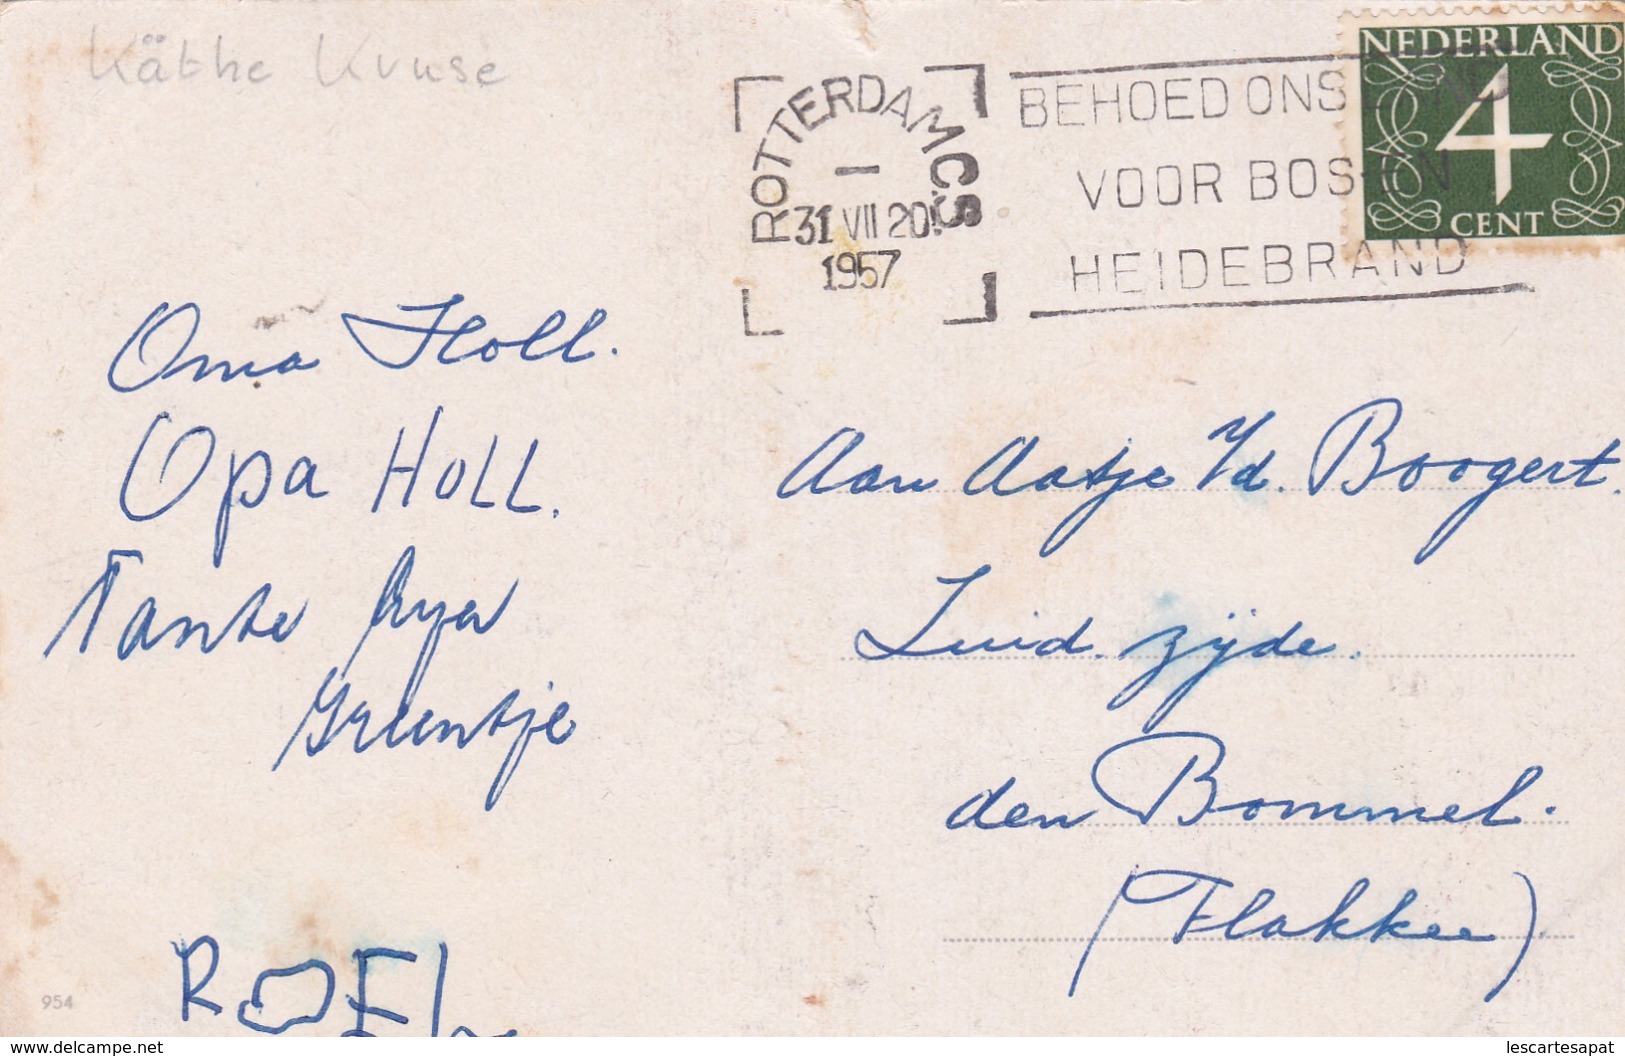 Käthe Kruse
NEDERLAND
4
CENT
ROTTERDAM CS
31 VII 20
1957
BEHOED ONS LAND
VOOR BOS-EN
HEIDEBRAND
Oma Holl.
Opa HOLL.
Tante
Greentje
ROEL
Aan Aatje v/d. Boogert.
Zuid. zijde.
den Bommel.
(Flakkee)
954
www.delcampe.net
lescartesapat